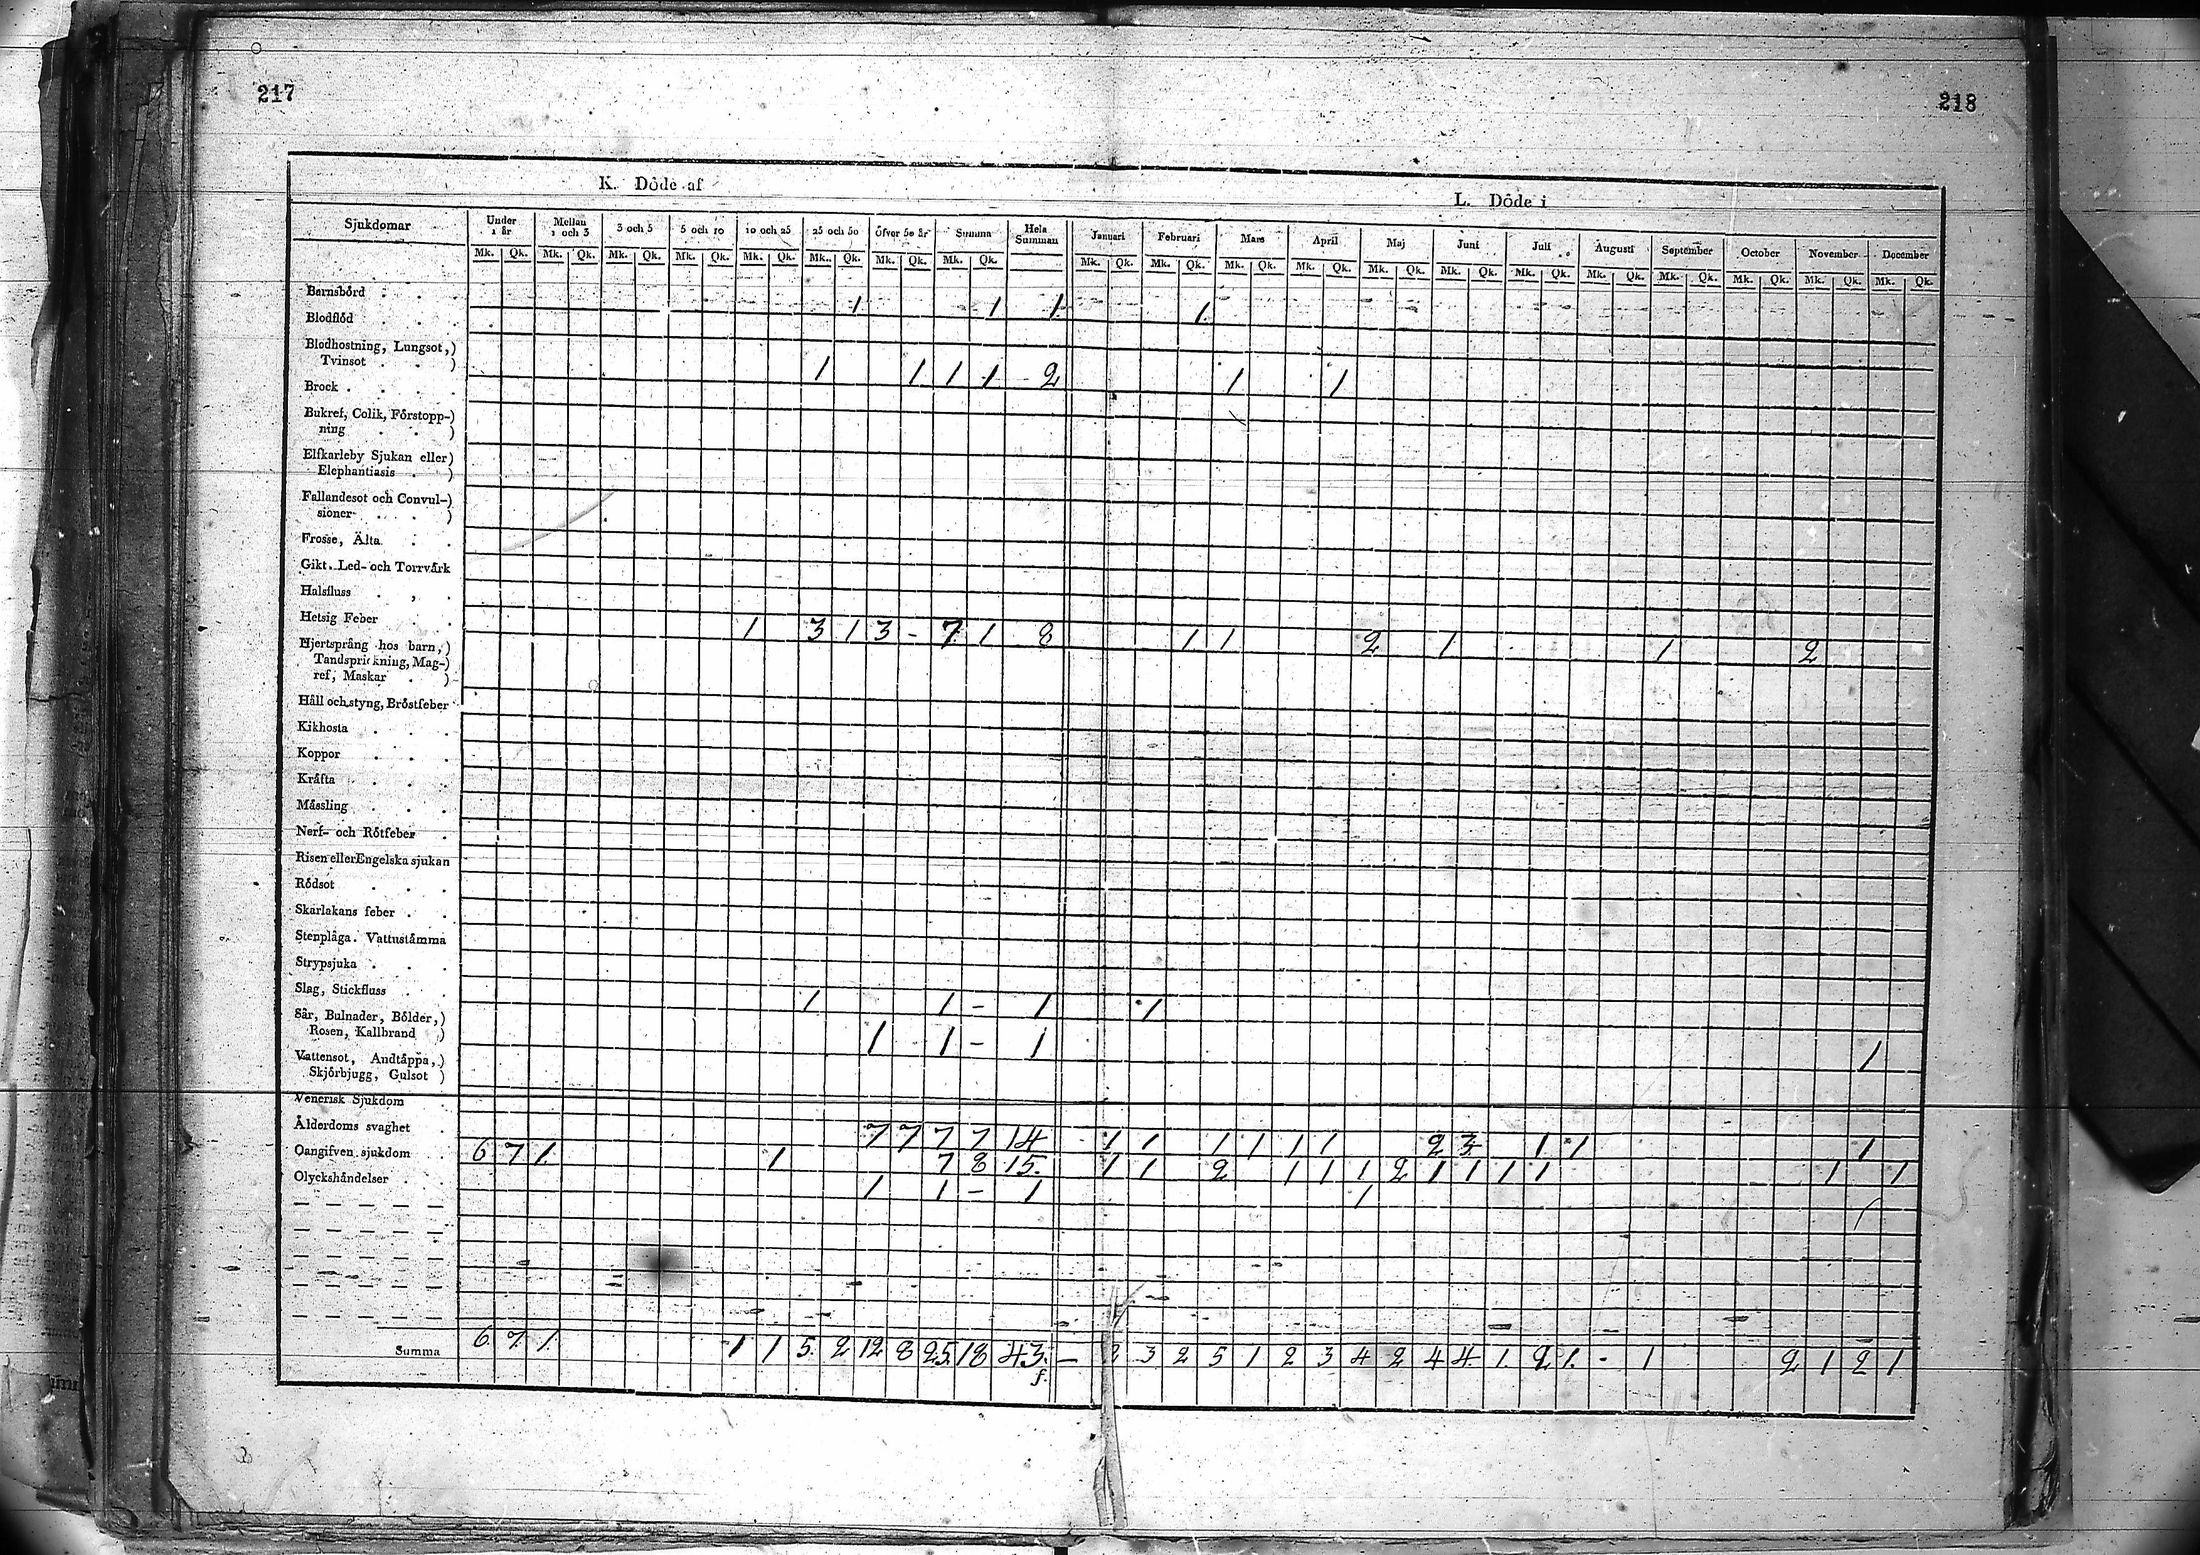 217
218
K. Döde af
L. Döde i
Sjukdomar Under 1 år Mellan 1 och 3 3 och 5 5 och 10 10 och 25 25 och 50 öfver 50 år Summa Hela Summan Januari Februari Mars April Maj Juni Juli Augusti September October November December
Mk. Qk. Mk. Qk. Mk. Qk. Mk. Qk. Mk. Qk. Mk. Qk. Mk. Qk. Mk. Qk. Mk. Qk. Mk. Qk. Mk. Qk. Mk. Qk. Mk. Qk. Mk. Qk. Mk. Qk. Mk. Qk. Mk. Qk. Mk. Qk. Mk. Qk. Mk. Qk.
Barnsbörd . . . 1 1 1 1
Blodflöd . . .
Blodhostning, Lungsot,)
Tvinsot . . ) 1 1 1 1 2 1 1
Brock . . . .
Bukref, Colik, Förstopp-)
ning . . )
Elfkarleby Sjukan eller)
Elephantiasis . )
Fallandesot och Convul-)
sioner . . . )
Frosse, Älta . .
Gikt. Led- och Torrvärk
Halsfluss . , .
Hetsig Feber . . 1 3 1 3 - 7 1 8 1 1 2 1 1 2
Hjertsprång hos barn,)
Tandsprickning, Mag-)
ref, Maskar . )
Håll och styng, Bröstfeber
Kikhosta . . .
Koppor . . .
Kräfta . . .
Mässling . . .
Nerf- och Rötfeber .
Risen eller Engelska sjukan
Rödsot . . .
Skarlakans feber . .
Stenplåga. Vattustämma
Strypsjuka . . .
Slag, Stickfluss . . 1 1 - 1 1
Sår, Bulnader, Bölder,)
Rosen, Kallbrand ) 1 1 - 1 1
Vattensot, Andtäppa,)
Skjörbjugg, Gulsot )
Venerisk Sjukdom .
Ålderdoms svaghet . 7 7 7 7 14 1 1 1 1 1 1 2 3 1 1 1
Oangifven sjukdom . 6 7 1 1 7 8 15. 1 1 2 1 1 1 2 1 1 1 1 1 1
Olyckshändelser . . 1 1 - 1 1
Summa 6 7 1 1 1 5 2 12 8 25 18 43. — 2 3 2 5 1 2 3 4 2 4 4 1 2 1 - 1 2 1 2 1